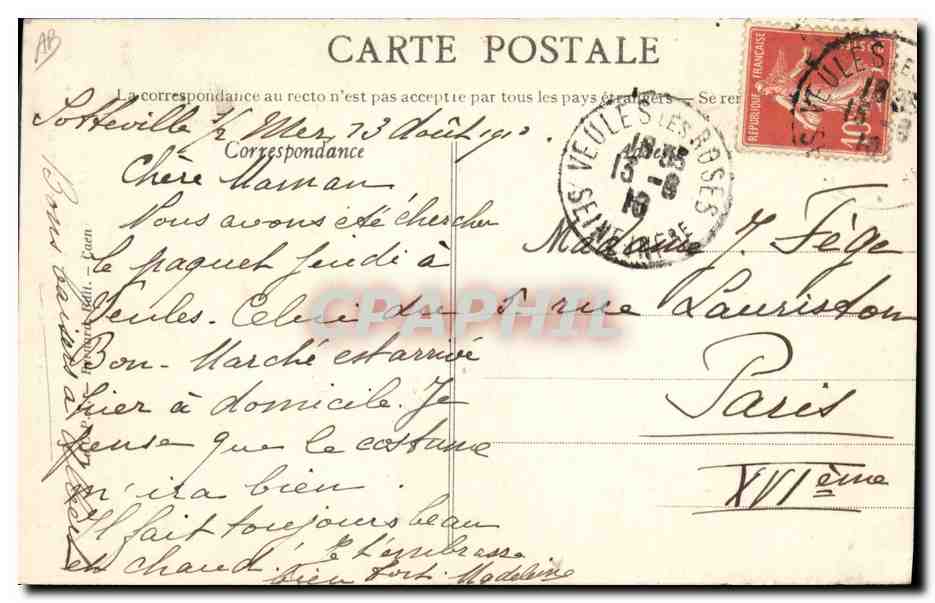 AB
CARTE POSTALE
La correspondance au recto n'est pas acceptée par tous les pays étrangers - Se ren
Correspondance
Adresse
Sotteville s/ Mer, 13 Août 1910.
Chère Maman,
Nous avons été chercher
le paquet jeudi à
Veules. Celui du
Bon-Marché est arrivé
hier à domicile. Je
pense que le costume
m'ira bien.
Il fait toujours beau
et chaud. Je t'embrasse
bien fort. Madeleine
Bons baisers à
Édit. - Caen
Madame J. Fège
5, rue Lauriston
Paris
XVIème
VEULES LES ROSES
18 35
13 - 8
10
SEINE INFRE
REPUBLIQUE FRANÇAISE
10
VEULES
CPAPHIL